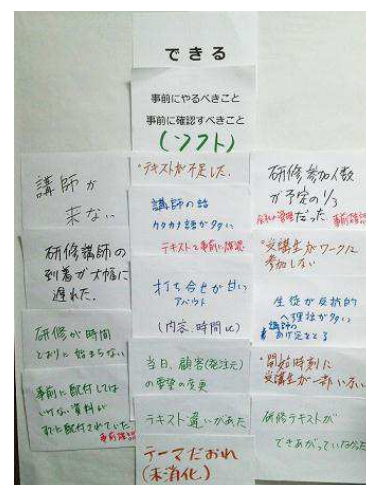 できる
事前にやるべきこと
事前に確認すべきこと
(ソフト)
講師が
来ない
研修講師の
到着が大幅に
遅れた.
研修が時間
どおりに始まらない
事前に配付しては
いけない資料が
すでに配付されていた
事前確認
・テキストが不足した.
講師の話
カタカナ語が多い
テキストを事前に確認
打ち合せが甘い
アバウト
(内容、時間 etc)
当日、顧客(発注元)
の要望の変更
テキスト違いがあった
テーマだおれ
(未消化)
研修参加人数
が予定の1/3
だった
事前確認
・受講生がワークに
参加しない
生徒が反抗的
講師の
・開始時刻に
受講生が一部いない
研修テキストが
できあがっていなかった